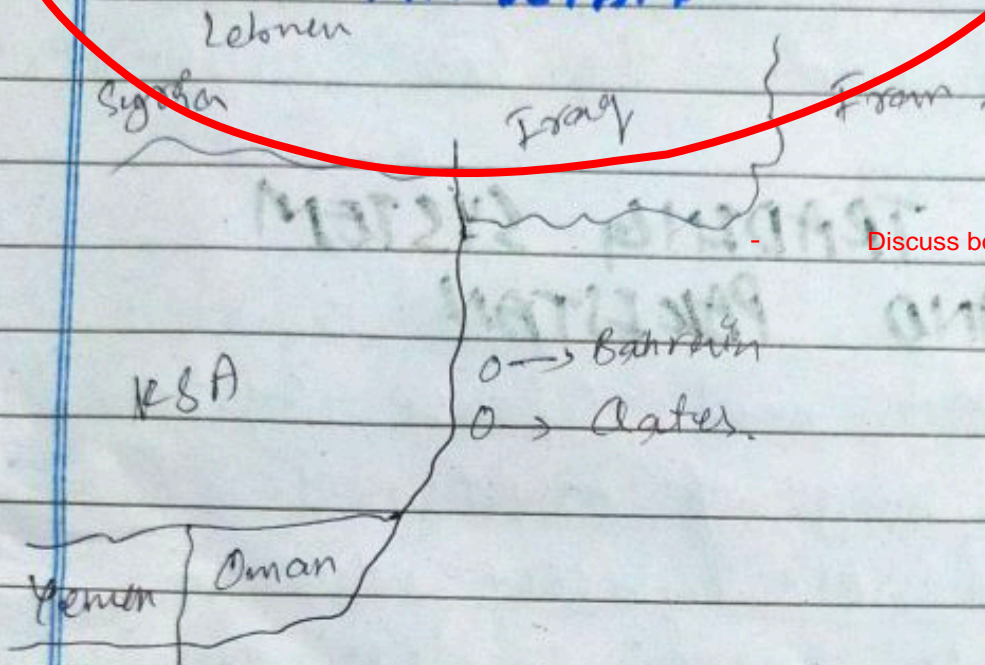 Lebonen
Sygria
Iraq
Iran
Discuss be
KSA
O → Bahrain
O → Qater.
Oman
Yemen